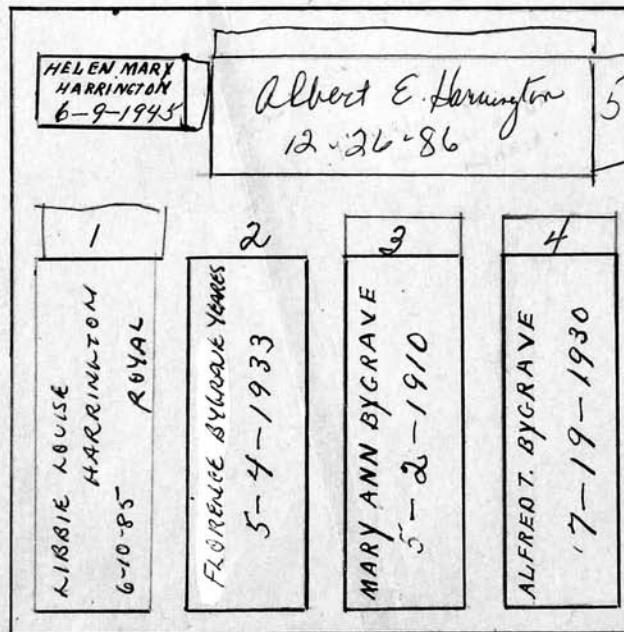 HELEN MARY
HARRINGTON
6-9-1945
Albert E. Harrington
12-26-86
5
1
LIBBIE LOUISE
HARRINGTON
ROYAL
6-10-85
2
FLORENCE BYGRAVE YEARES
5-4-1933
3
MARY ANN BYGRAVE
5-2-1910
4
ALFRED T. BYGRAVE
7-19-1930